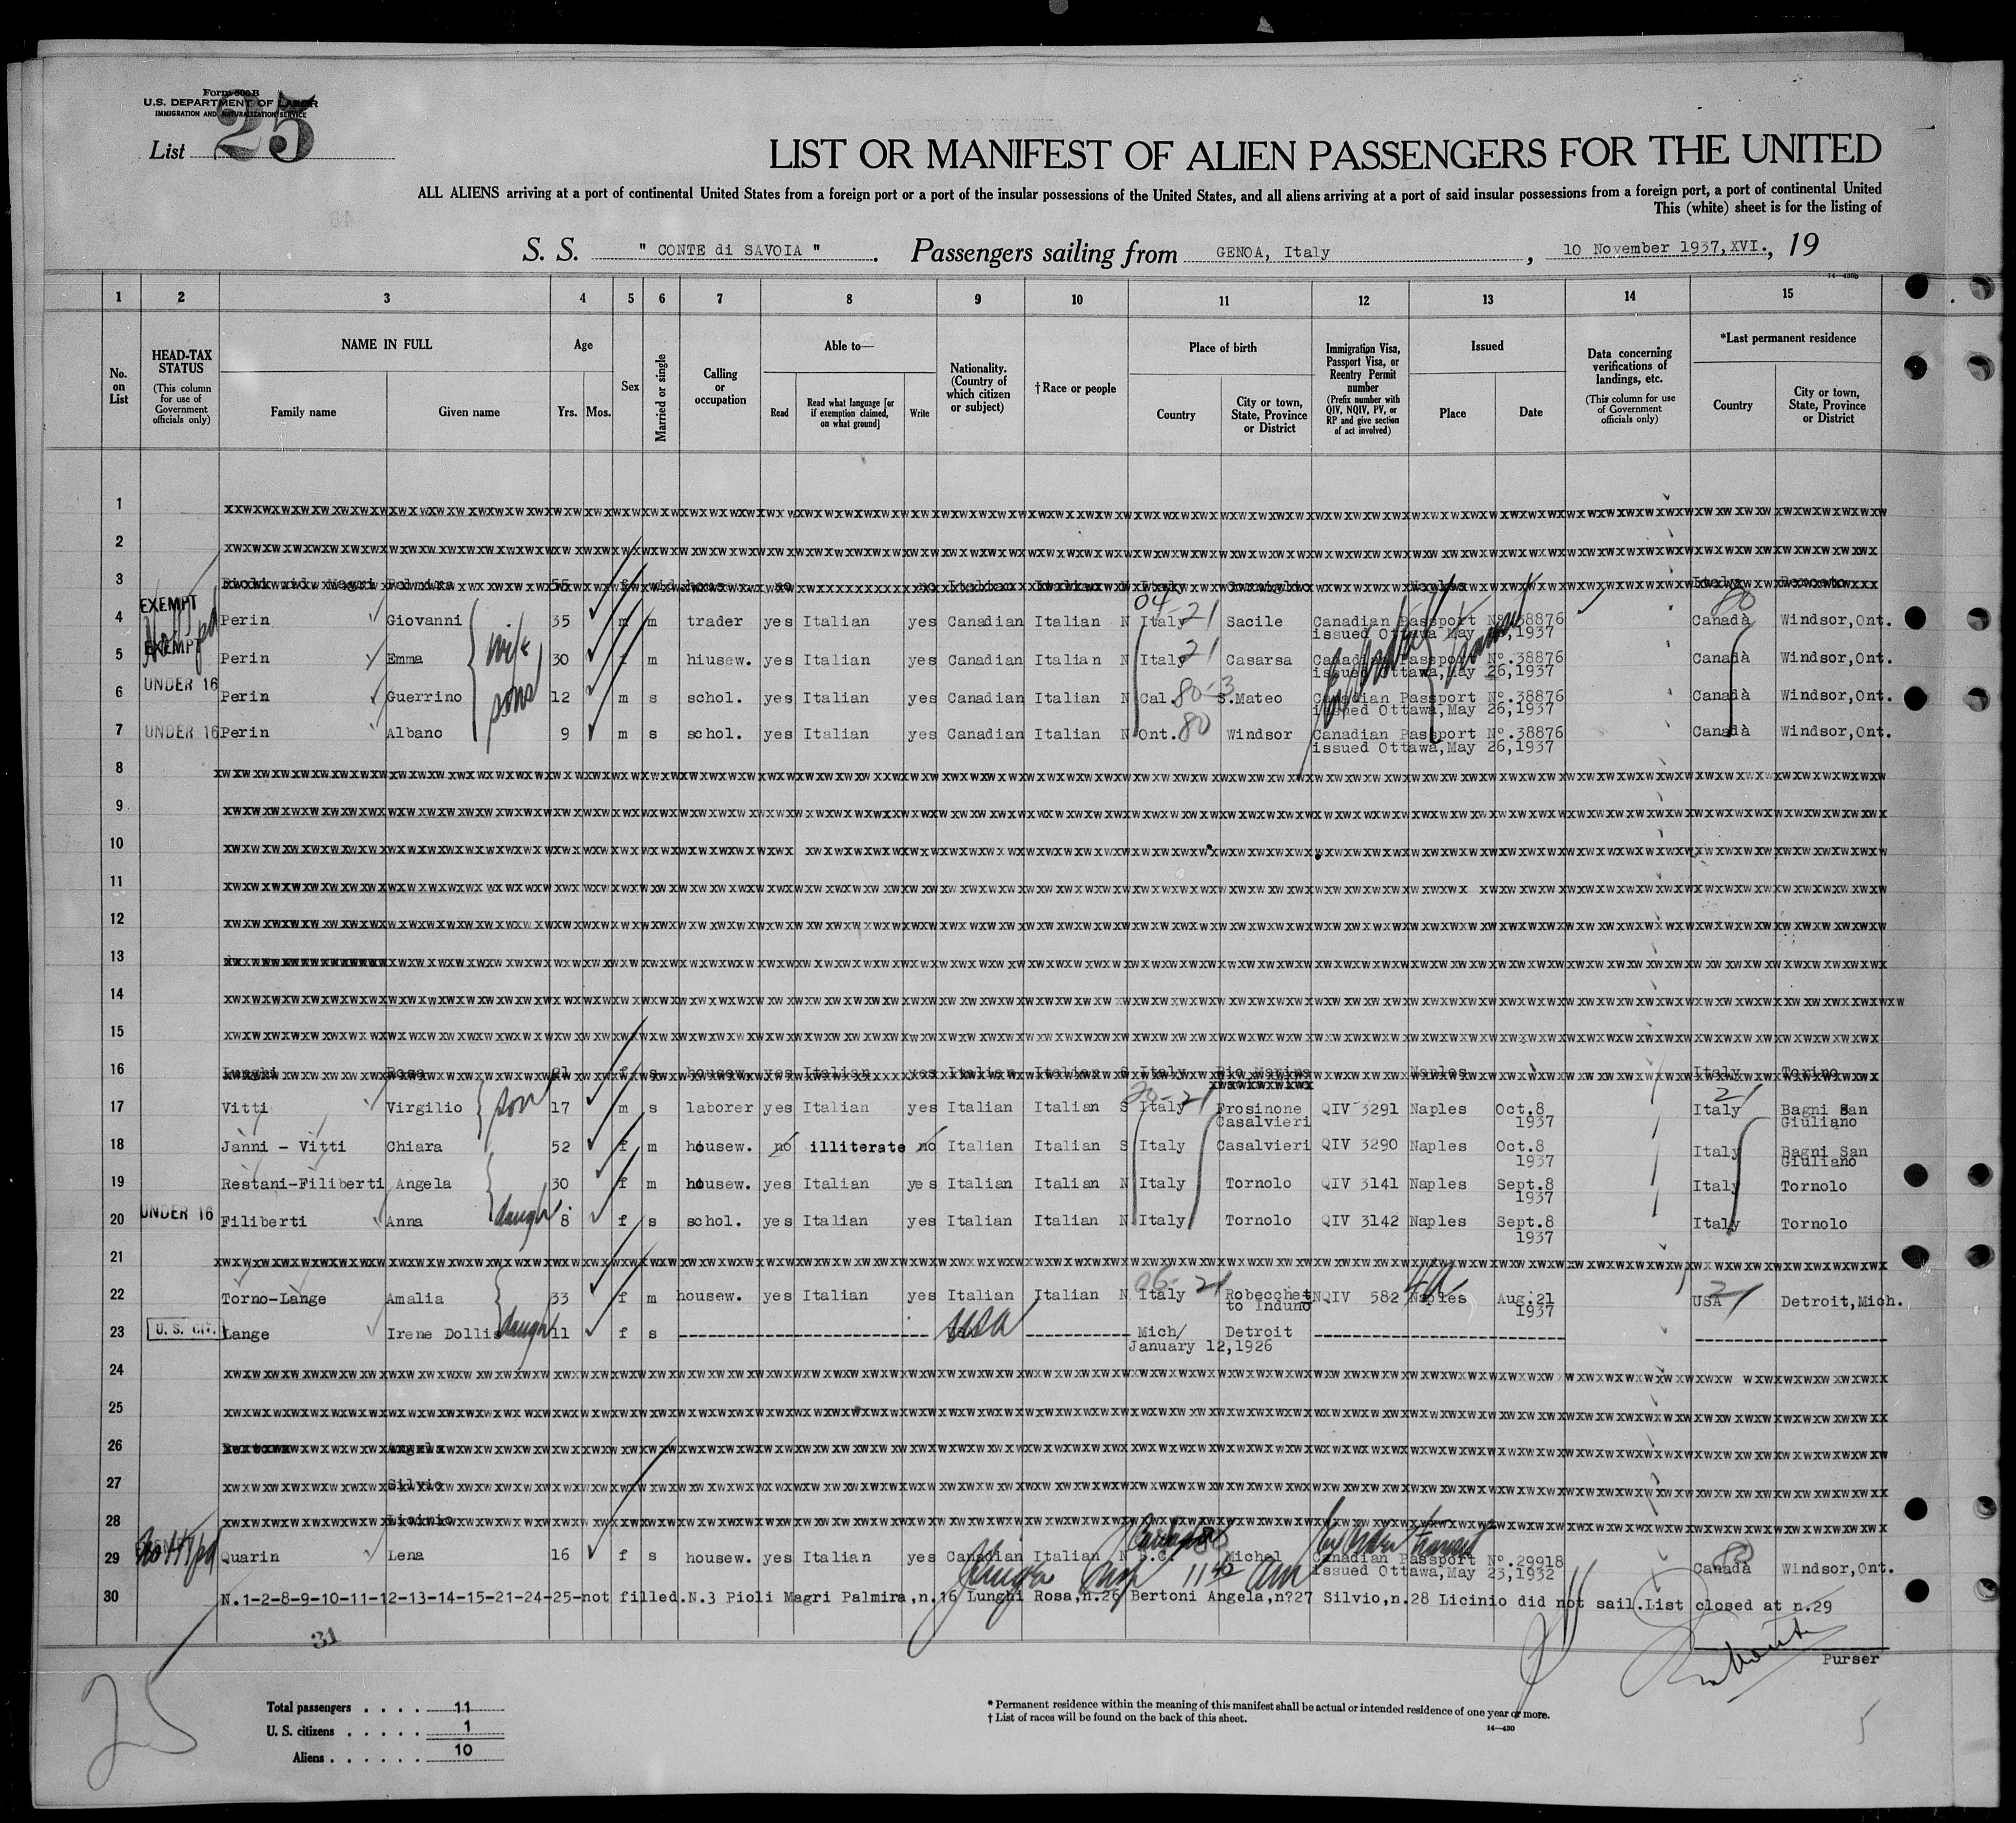 Form 500 B
U.S. DEPARTMENT OF LABOR
IMMIGRATION AND NATURALIZATION SERVICE
List 25
LIST OR MANIFEST OF ALIEN PASSENGERS FOR THE UNITED
ALL ALIENS arriving at a port of continental United States from a foreign port or a port of the insular possessions of the United States, and all aliens arriving at a port of said insular possessions from a foreign port, a port of continental United
This (white) sheet is for the listing of
S. S. " CONTE di SAVOIA " . Passengers sailing from GENOA, Italy , 10 November 1937,XVI., 19
14—430b
1 2 3 4 5 6 7 8 9 10 11 12 13 14 15
No. on List
HEAD-TAX STATUS (This column for use of Government officials only)
NAME IN FULL Family name Given name
Age Yrs. Mos.
Sex
Married or single
Calling or occupation
Able to— Read Read what language [or if exemption claimed, on what ground] Write
Nationality. (Country of which citizen or subject)
†Race or people
Place of birth Country City or town, State, Province or District
Immigration Visa, Passport Visa, or Reentry Permit number (Prefix number with QIV, NQIV, PV, or RP and give section of act involved)
Issued Place Date
Data concerning verifications of landings, etc. (This column for use of Government officials only)
*Last permanent residence Country City or town, State, Province or District
1
2
3
EXEMPT 04-21 80
4 Perin Giovanni 35 m m trader yes Italian yes Canadian Italian N Italy Sacile Canadian Passport Nº.38876 Canadà Windsor,Ont.
issued Ottawa May 26,1937
EXEMPT wife 21
5 Perin Emma 30 f m hiusew. yes Italian yes Canadian Italian N Italy Casarsa Canadian Passport Nº.38876 Canadà Windsor,Ont.
issued Ottawa,May 26,1937
UNDER 16 sons 80-3
6 Perin Guerrino 12 m s schol. yes Italian yes Canadian Italian N Cal. S.Mateo Canadian Passport Nº.38876 Canadà Windsor,Ont.
issued Ottawa,May 26,1937
7 UNDER 16 Perin Albano 9 m s schol. yes Italian yes Canadian Italian N Ont. 80 Windsor Canadian Passport Nº.38876 Canadà Windsor,Ont.
issued Ottawa,May 26,1937
8
9
10
11
12
13
14
15
16 Lunghi Rosa 21 f s housew. yes Italian yes Italian Italian S Italy Rio Marina Naples Italy Torino
son 21
17 Vitti Virgilio 17 m s laborer yes Italian yes Italian Italian S Italy Frosinone QIV 3291 Naples Oct.8 Italy Bagni San
Casalvieri 1937 Giuliano
18 Janni - Vitti Chiara 52 f m housew. no illiterate no Italian Italian S Italy Casalvieri QIV 3290 Naples Oct.8 Italy Bagni San
1937 Giuliano
19 Restani-Filiberti Angela 30 f m housew. yes Italian yes Italian Italian N Italy Tornolo QIV 3141 Naples Sept.8 Italy Tornolo
1937
20 UNDER 16 Filiberti Anna daugh. 8 f s schol. yes Italian yes Italian Italian N Italy Tornolo QIV 3142 Naples Sept.8 Italy Tornolo
1937
21
26-21 4a 21
22 Torno-Lange Amalia 33 f m housew. yes Italian yes Italian Italian N Italy Robecchet NQIV 582 Naples Aug.21 USA Detroit,Mich.
to Induno 1937
23 U. S. CIT. Lange Irene Dollis daugh 11 f s USA Mich/ Detroit
January 12,1926
24
25
26
27 Silvio
28 Licinio
29 Quarin Lena 16 f s housew. yes Italian yes Canadian Italian N B.C. Michel Canadian Passport No.29918 Canadà Windsor,Ont.
issued Ottawa,May 23,1932
30 N.1-2-8-9-10-11-12-13-14-15-21-24-25-not filled.N.3 Pioli Magri Palmira,n.16 Lunghi Rosa,n.26 Bertoni Angela,n?27 Silvio,n.28 Licinio did not sail.List closed at n.29
31
Purser
25
Total passengers . . . . 11
U. S. citizens . . . . . 1
Aliens . . . . . . 10
* Permanent residence within the meaning of this manifest shall be actual or intended residence of one year or more.
† List of races will be found on the back of this sheet.
14—430
5